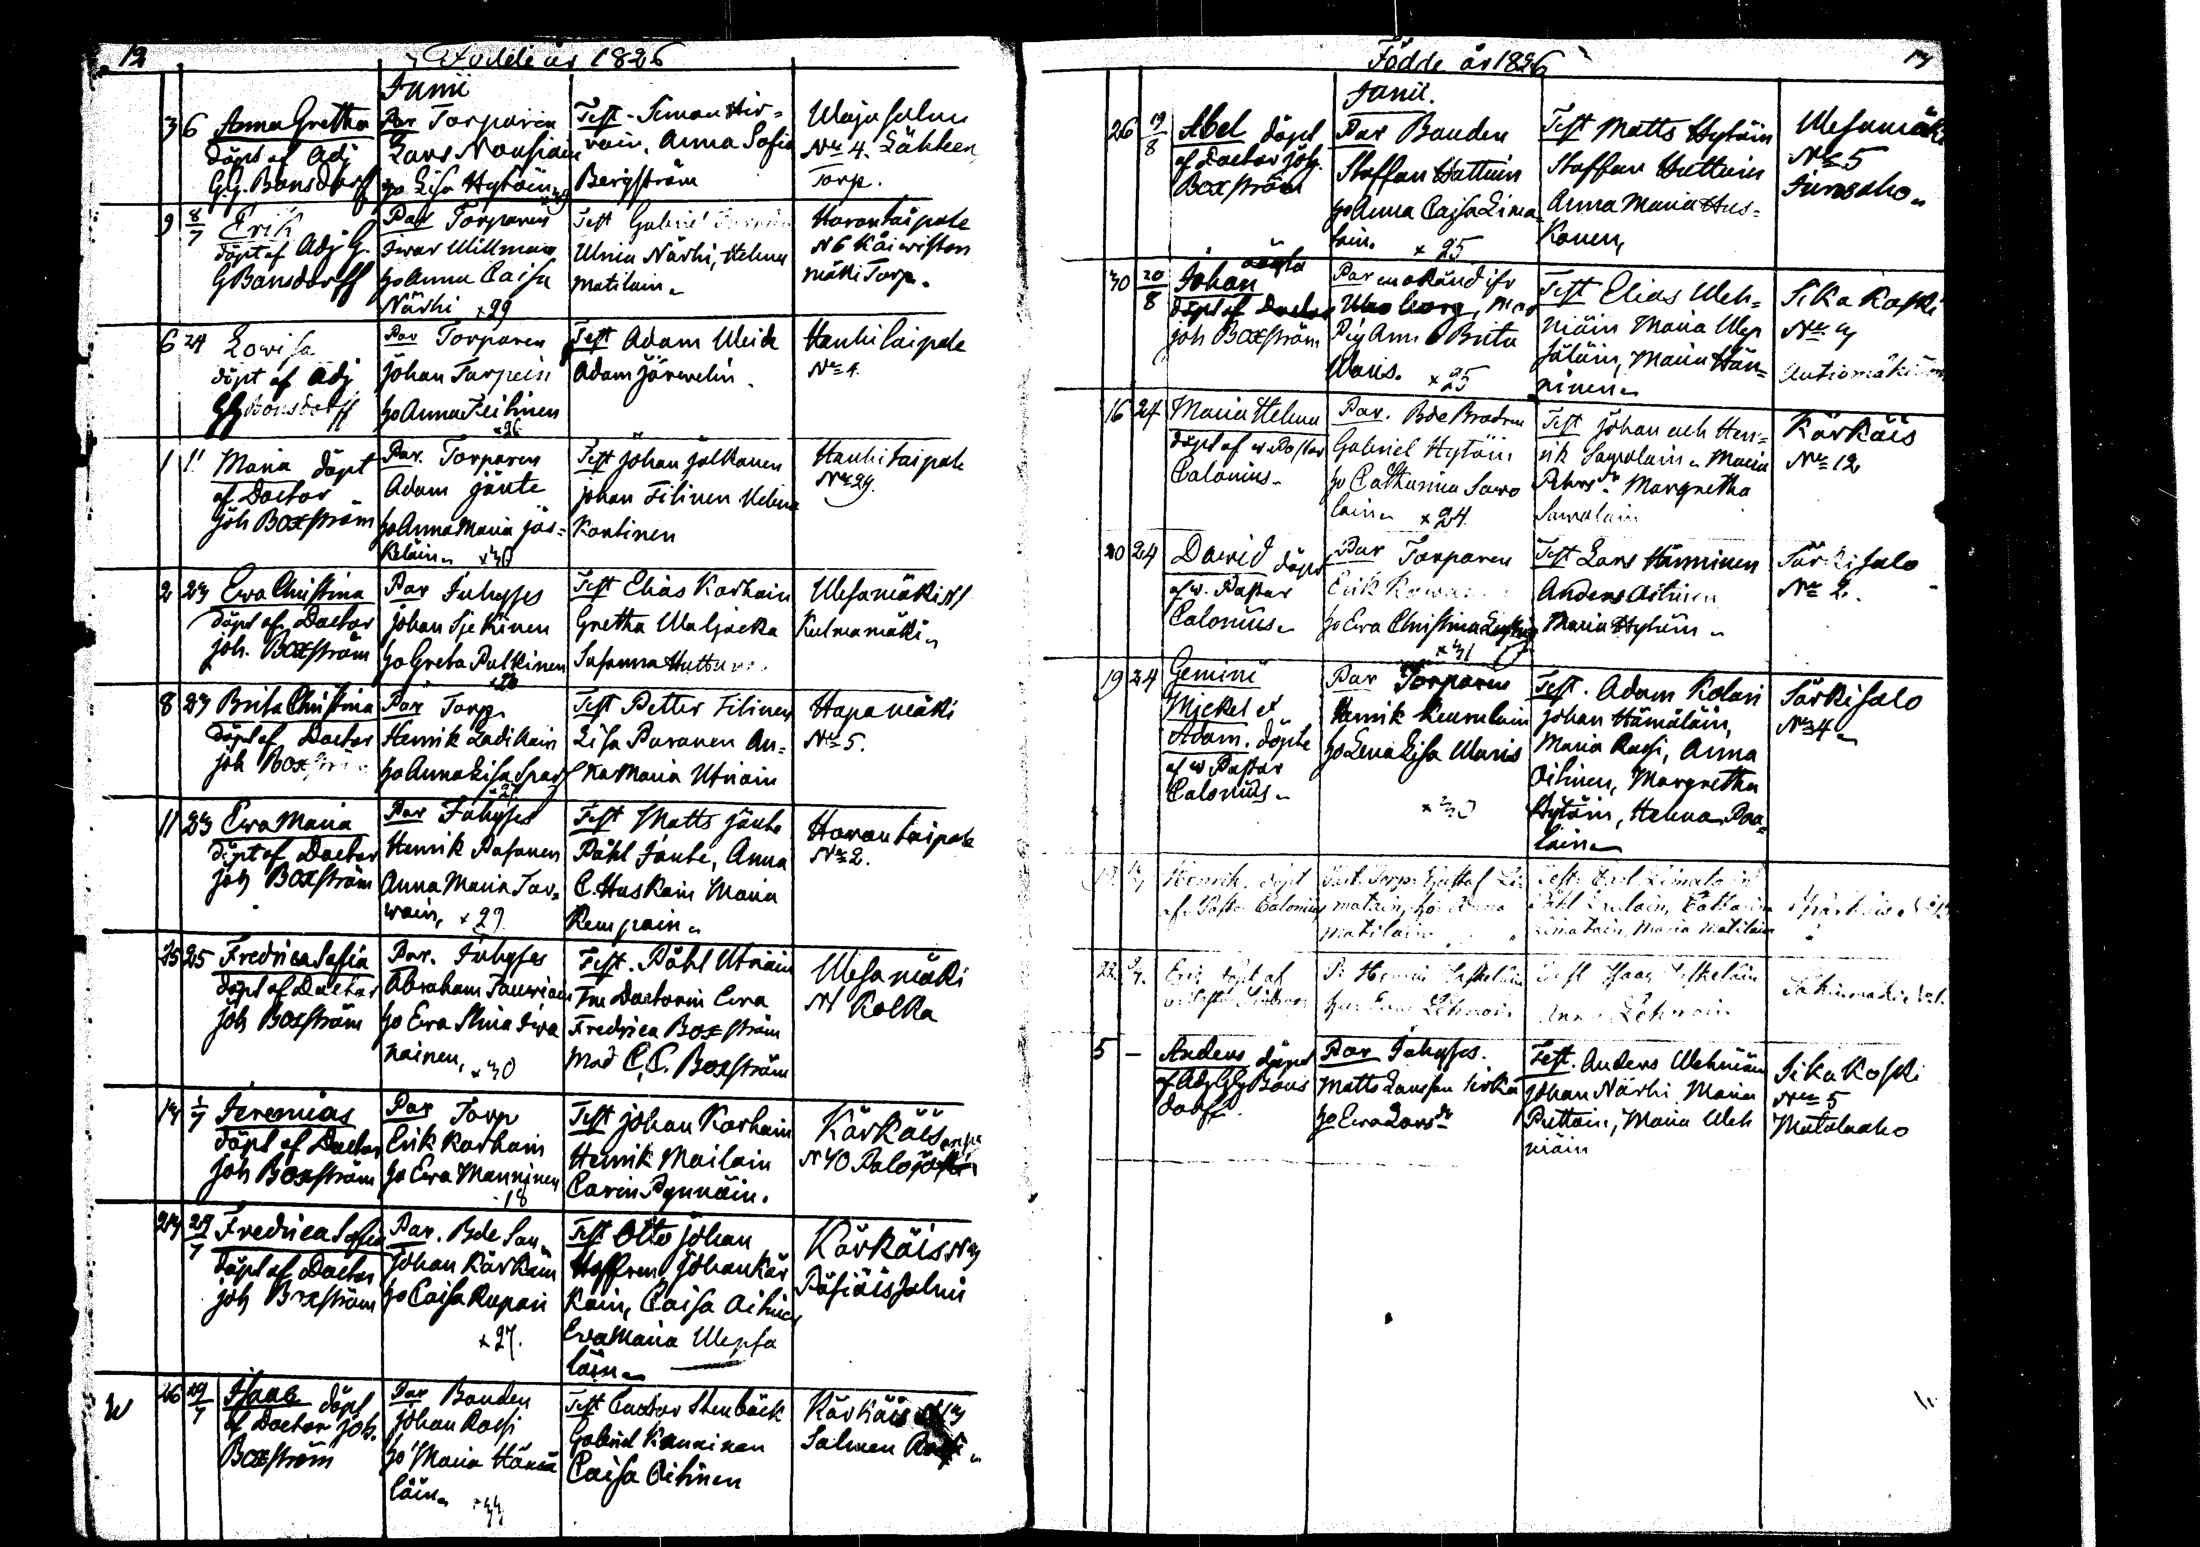 12
Födde år 1826
Junii
3 6 Anna Gretha
döpt af Adj
G.G. Bonsdorff
Par Torparen
Lars Nousiain
ho Lisa Hytöin
Test. Simon Hir-
voin, Anna Sofia
Bergström
Wajasalmi
No 4. Lähteen
Torp.
9 8/7 Erik
döpt af Adj G.
G Bonsdorff
Par Torparen
Iwar Willman
ho Anna Caisa
Närhi x29
Test Gabriel
Ulrica Närhi, Helena
Matilain
Harantaipale
N 6 Käiwiston
mäki Torp.
6 24 Lowisa
döpt af Adj
GG Bonsdorff
Par Torparen
Johan Tarpein
ho Anna Teitinen
x26
Test Adam Weide
Adam Järwelin.
Hanhitaipale
No 4.
1 11 Maria döpt
af Doctor
Joh Boxström
Par. Torparen
Adam Jäute
ho Anna Maria Jäs-
keläin x30
Test Johan Jalkanen
Johan Tilinen Helena
Kortinen
Hanhitaipale
No 29.
2 23 Ewa Christina
döpt af Doctor
Joh. Boxström
Par Inhyses
Johan Tjekinen
ho Greta Pulkinen
x28
Test Elias Karhain
Gretha Waljacka
Susanna Huttunen
Wesamäki N1
Kulmamäki
8 23 Brita Christina
döpt af Doctor
Joh Boxström
Par Torp.
Henrik Ladikain
ho Anna Lisa Sparf
x27
Test Petter Tilinen
Lisa Puranen An-
na Maria Utriain
Hapamäki
No 5.
11 23 Ewa Maria
döpt af Doctor
Joh Boxström
Par Inhyses
Henrik Pasanen
Anna Maria Tar-
wain, x29
Test Matts Jäute
Påhl Jäute, Anna
C. Huskain Maria
Rempain
Harantaipale
No 2.
25 25 Fredrica Sofia
döpt af Doctor
Joh Boxström
Par. Inhyses
Abraham Tauriain
ho Ewa Stina Iwa
nainen, x30
Test. Påhl Utriain
Fru Doctorin Ewa
Fredrica Boxström
Mad C,C. Boxström
Wesamäki
N1 Kolka
13 1/7 Jeremias
döpt af Doctor
Joh Boxström
Par Torp
Erik Karhain
ho Ewa Manninen
18
Test Johan Karhain
Henrik Mailain
Carin Pynnöin.
Kärkäis
N 40 Palojärfi
23 29/7 Fredrica Sofia
döpt af Doctor
Joh Boxström
Par. Bde Son
Johan Kärkäin
ho Caisa Ruponi
x27.
Test Otto Johan
Hoffren Johan Kär
käin, Caisa Oitinen
Ewa Maria Wepsä
läin
Kärkäis N 3
Päsiäissalmi
W 26 29/7 Isaac döpt
af Doctor Joh.
Boxström
Par Bonden
Johan Rossi
ho Maria Hämä
läin x33
Test Castor Stenbäck
Gabriel Kauninen
Caisa Oitinen
Kärkäis N 13
Salmen
13
Födde år 1826
Junii.
26 19/8 Abel döpt
af Doctor Joh.
Boxström
Par Bonden
Staffan Huttuin
ho Anna Caisa Lima
tain. x 25
Test Matts Hytöin
Staffan Huttuin
Anna Maria Hus-
konen,
Wesamäki
No 5
Junsaho
30 20/8 Johan oäkta
döpt af Doctor
Joh Boxström
Par en okänd ifr
Uleoborg, Mod
Pig Ann Brita
Waris. x 25
Test Elias Weh-
niäin Maria Wep
säläin, Maria Hän-
ninen
Sikakoski
No 3
Autiomäki
16 24 Maria Helena
döpt af w. Pastor
Calonius
Par. Bde Brodren
Gabriel Hytöin
ho Catharina Sawo
lain x 24.
Test Johan och Hen-
rik Sawolain. Maria
Pehrsdr Margretha
Sawolain
Kärkäis
No 12
20 24 Dawid döpt
af w. Pastor
Calonius
Par Torparen
Erik
ho Ewa Christina
x31
Test Lars Hänninen
Anders Oitinen
Maria Hytöin
Särkisalo
No 2.
19 24 Gemini
Mickel et
Adam. döpte
af w Pastor
Calonius
Par Torparen
Henrik Keurulain
ho Lena Lisa Waris
x30
Test. Adam Kolari
Johan Hämäläin,
Maria Rossi, Anna
Oitinen, Margretha
Hytöin, Helena Paa-
lain
Särkisalo
No 4
Henrik, döpt
af Pastor Calonius
Par. Torp. Gustaf Li-
matain, ho Anna
Matilain
Test. Carl Limatain
Påhl Laulain, Catharina
Limatain, Maria Matilain
22 Eric döpt af
P. Henric Jäskeläin
hu Ewa Lehwoin
Test Isaac Jäskeläin
Anna Lehwoin
5 – Anders döpt
af Adj GG Bons
dorff
Par Inhyses.
Matts Larsson
ho Ewa Larsdr
Test. Anders Wehniäin
Johan Närhi Maria
Puttoin, Maria Weh
niäin
Sikakoski
No 5
Matalaaho